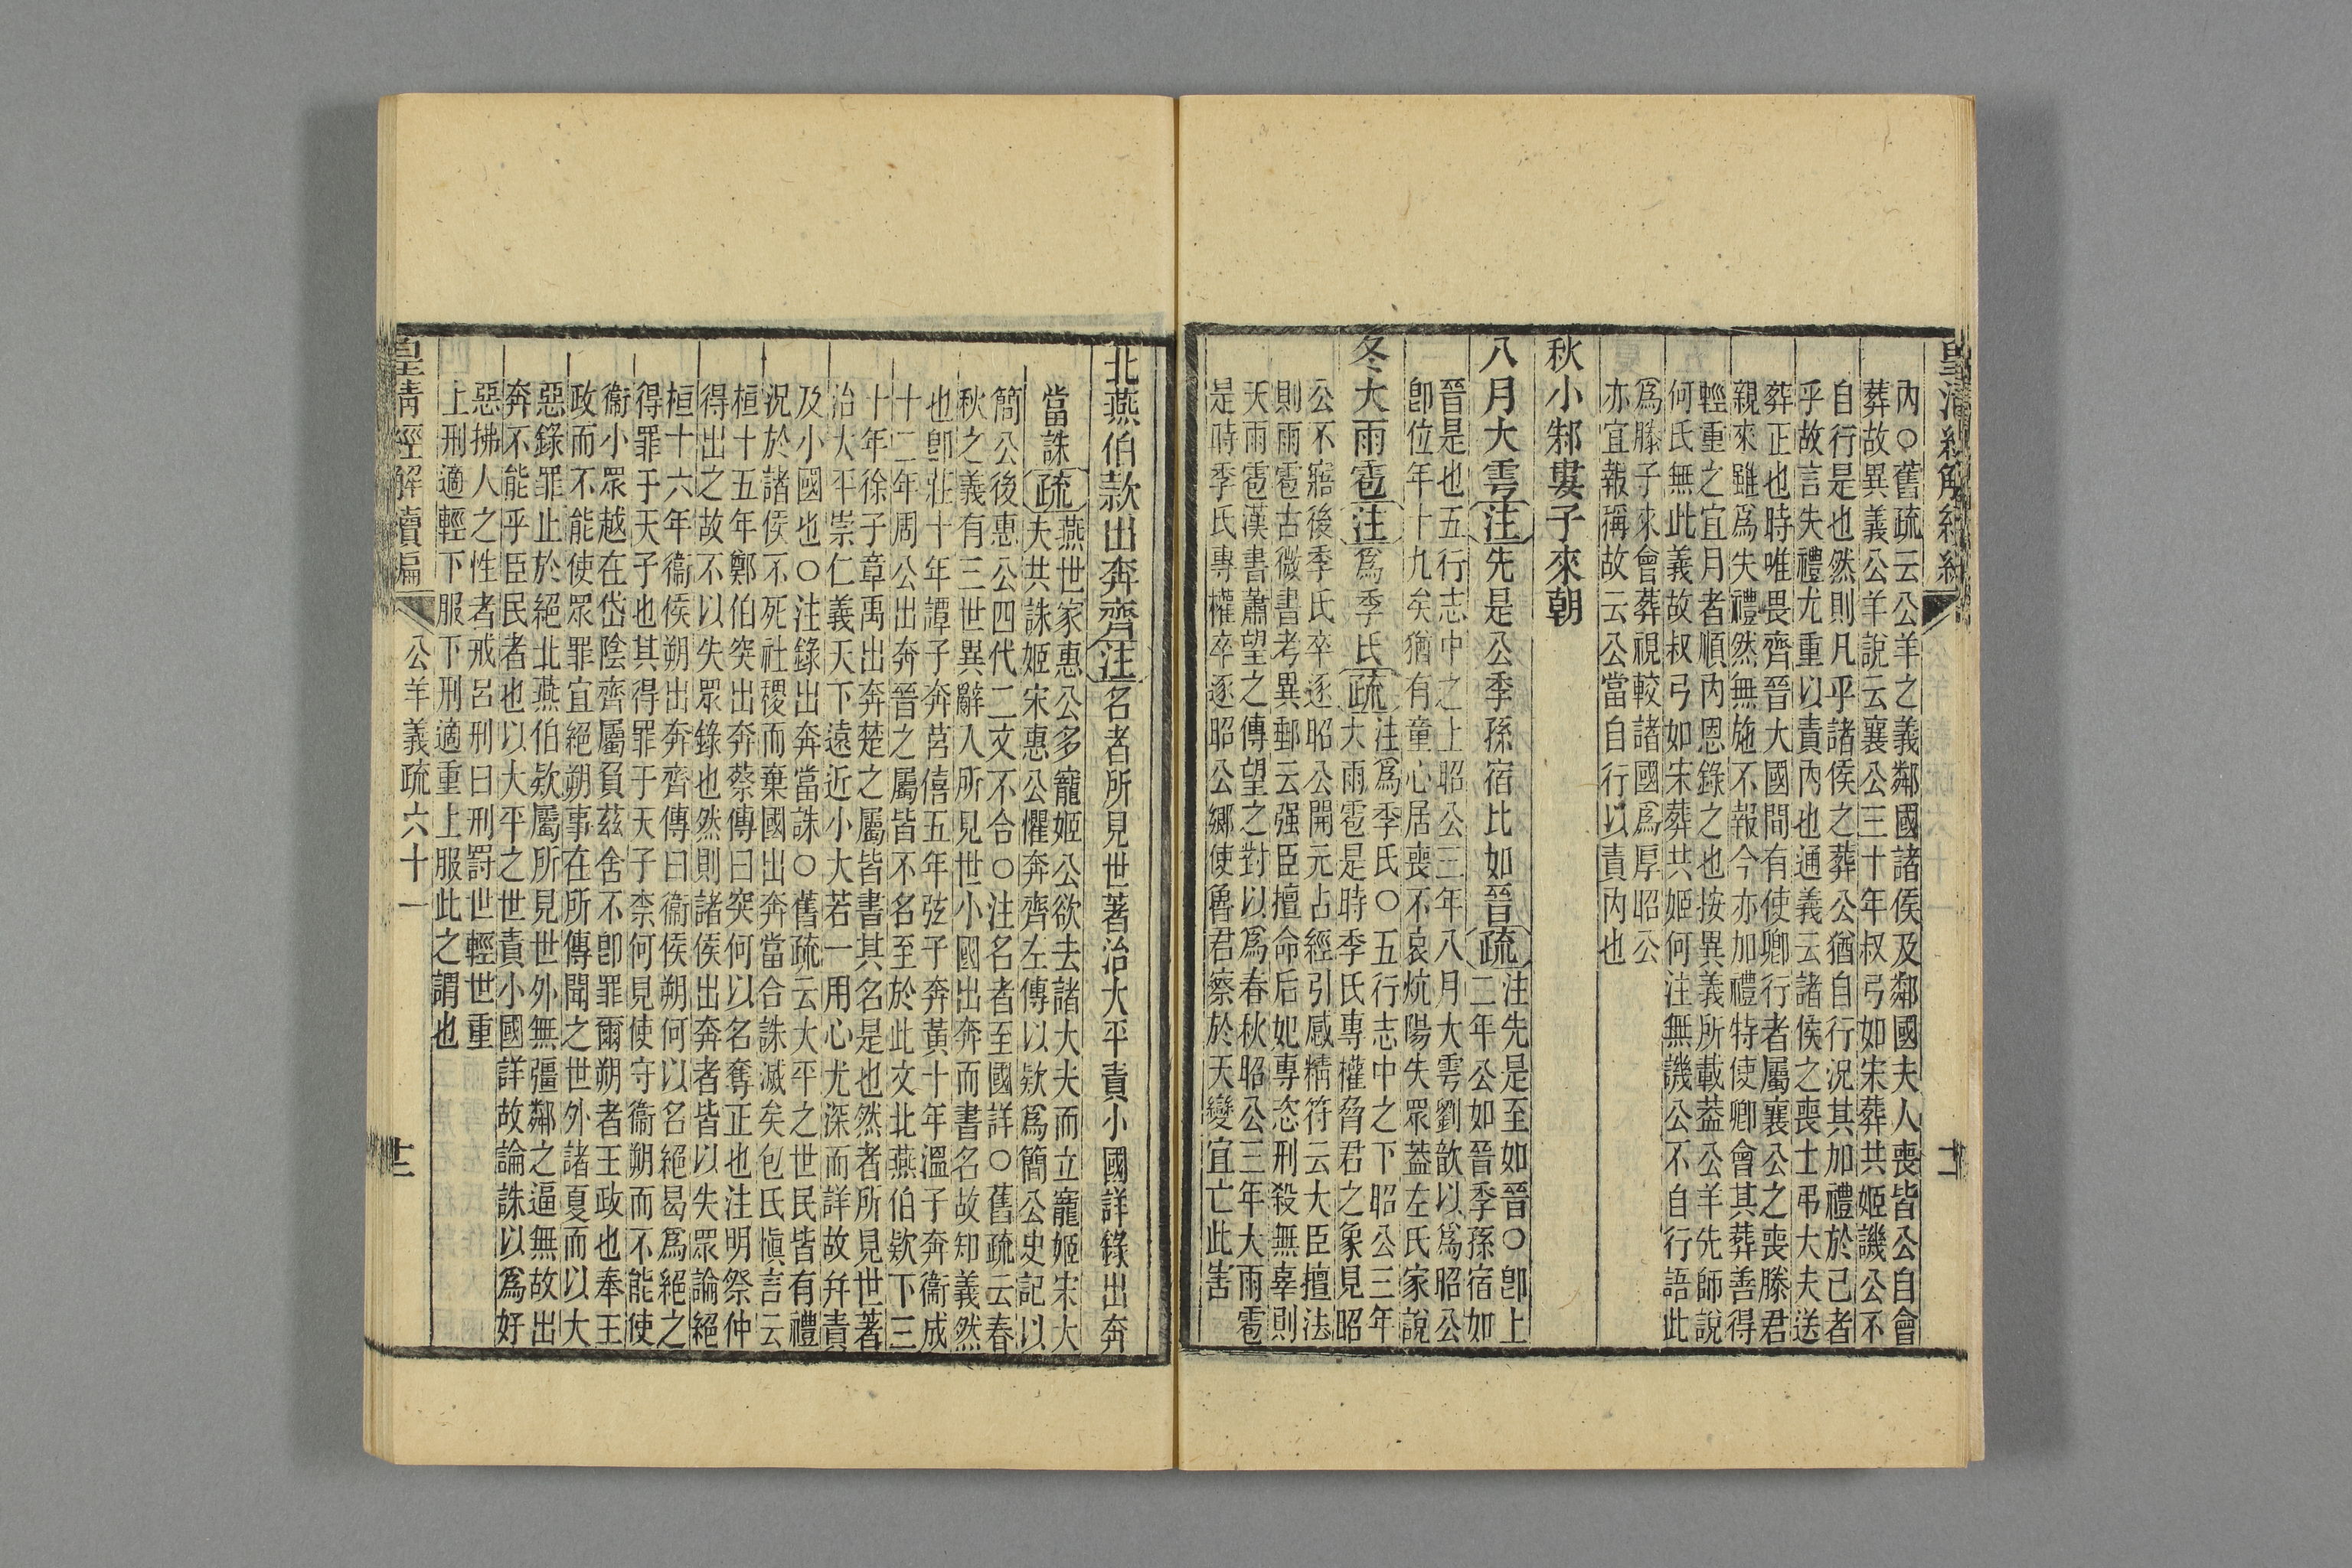 內○舊疏云公羊之義鄰國諸侯及鄰國夫人喪皆公自會
葬故異義公羊說云襄公三十年叔弓如宋葬共姬譏公不
自行是也然則凡乎諸侯之葬公猶自行況其加禮於己者
乎故言失禮尤重以責內也通義云諸侯之喪士弔大夫送
葬正也時唯畏齊晉大國間有使卿行者屬襄公之喪滕君
親來雖爲失禮然無施不報今亦加禮特使卿會其葬善得
輕重之宜月者順內恩錄之也按異義所載葢公羊先師說
何氏無此義故叔弓如宋葬共姬何注無譏公不自行語此
爲滕子來會葬視較諸國爲厚昭公
亦宜報稱故云公當自行以責內也
秋小邾婁子來朝
八月大雩注先是公季孫宿比如晉疏注先是至如晉○卽上
二年公如晉季孫宿如
晉是也五行志中之上昭公三年八月大雩劉歆以爲昭公
卽位年十九矣猶有童心居喪不哀炕陽失眾葢左氏家說
冬大雨雹注爲季氏疏注爲季氏○五行志中之下昭公三年
大雨雹是時季氏專權脅君之象見昭
公不寤後季氏卒逐昭公開元占經引感精符云大臣擅法
則雨雹古微書考異郵云强臣擅命后妃專恣刑殺無辜則
天雨雹漢書蕭望之傳望之對以爲春秋昭公三年大雨雹
是時季氏專權卒逐昭公鄉使魯君察於天變宜亡此害
北燕伯款出奔齊注名者所見世著治大平責小國詳錄出奔
當誅疏燕世家惠公多寵姬公欲去諸大夫而立寵姬宋大
夫共誅姬宋惠公懼奔齊左傳以欵爲簡公史記以
簡公後惠公四代二文不合○注名者至國詳○舊疏云春
秋之義有三世異辭人所見世小國出奔而書名故知義然
也卽莊十年譚子奔莒僖五年弦子奔黃十年溫子奔衞成
十二年周公出奔晉之屬皆不名至於此文北燕伯欵下三
十年徐子章禹出奔楚之屬皆書其名是也然者所見世著
治大平崇仁義天下遠近小大若一用心尤深而詳故幷責
及小國也○注錄出奔當誅○舊疏云大平之世民皆有禮
況於諸侯不死社稷而棄國出奔當合誅滅矣包氏愼言云
桓十五年鄭伯突出奔蔡傳曰突何以名奪正也注明祭仲
得出之故不以失眾錄也然則諸侯出奔者皆以失眾論絕
桓十六年衞侯朔出奔齊傳曰衞侯朔何以名絕曷爲絕之
得罪于天子也其得罪于天子柰何見使守衞朔而不能使
衞小眾越在岱陰齊屬負茲舍不卽罪爾朔者王政也奉王
政而不能使眾罪宜絕朔事在所傳聞之世外諸夏而以大
惡錄罪止於絕北燕伯欵屬所見世外無彊鄰之逼無故出
奔不能乎臣民者也以大平之世責小國詳故論誅以爲好
惡拂人之性者戒呂刑曰刑罰世輕世重
上刑適輕下服下刑適重上服此之謂也
皇淸經解續編 公羊義疏六十一 十二